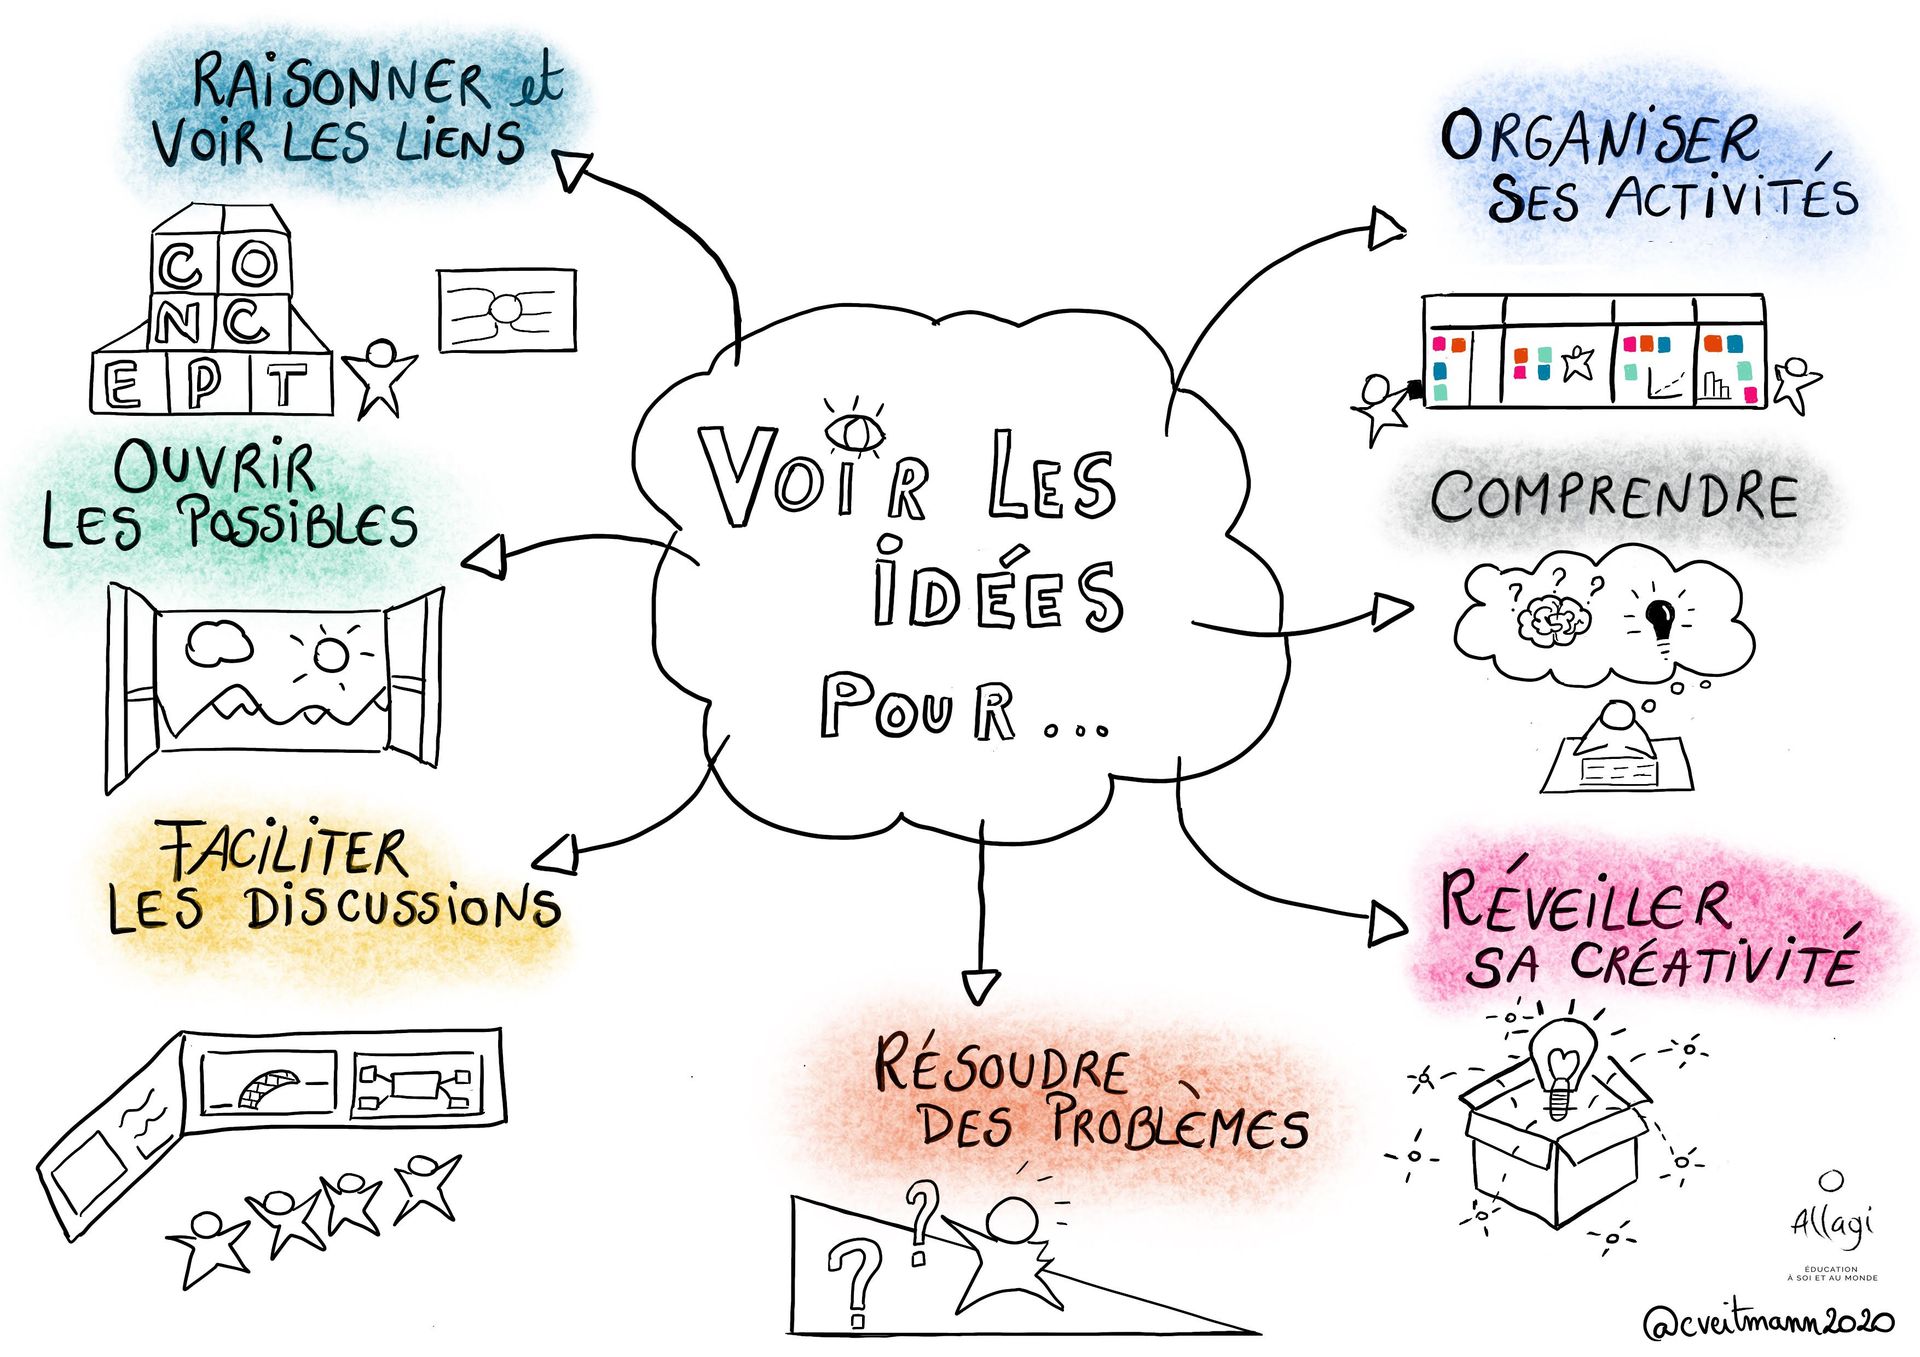 RAISONNER et
VOIR LES LIENS
CO
NC
EPT
OUVRIR
LES POSSIBLES
FACILITER
LES DISCUSSIONS
VOIR LES
IDÉES
POUR...
RÉSOUDRE
DES PROBLÈMES
? ?
ORGANISER
SES ACTIVITÉS
COMPRENDRE
? ? ?
RÉVEILLER
SA CRÉATIVITÉ
Allagi
ÉDUCATION
À SOI ET AU MONDE
@cveitmann2020